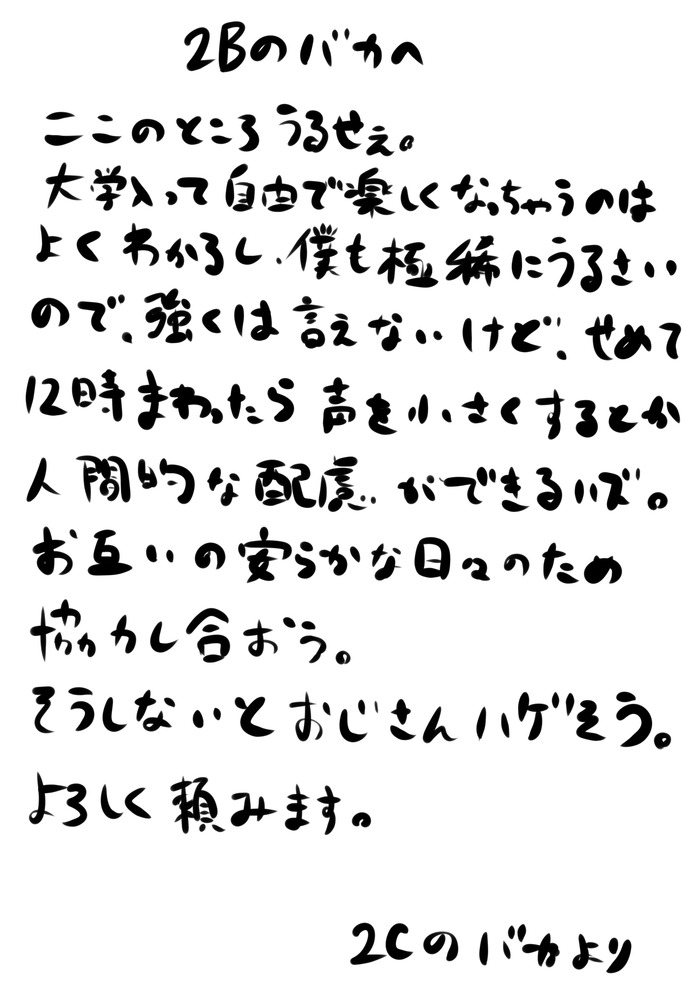 2Bのバカへ
ここのところうるせぇ。
大学入って自由で楽しくなっちゃうのは
よくわかるし、僕も極稀にうるさい
ので、強くは言えないけど、せめて
12時まわったら声を小さくするとか
人間的な配慮ができるハズ。
お互いの安らかな日々のため
協力し合おう。
そうしないとおじさんハゲそう。
よろしく頼みます。
2Cのバカより